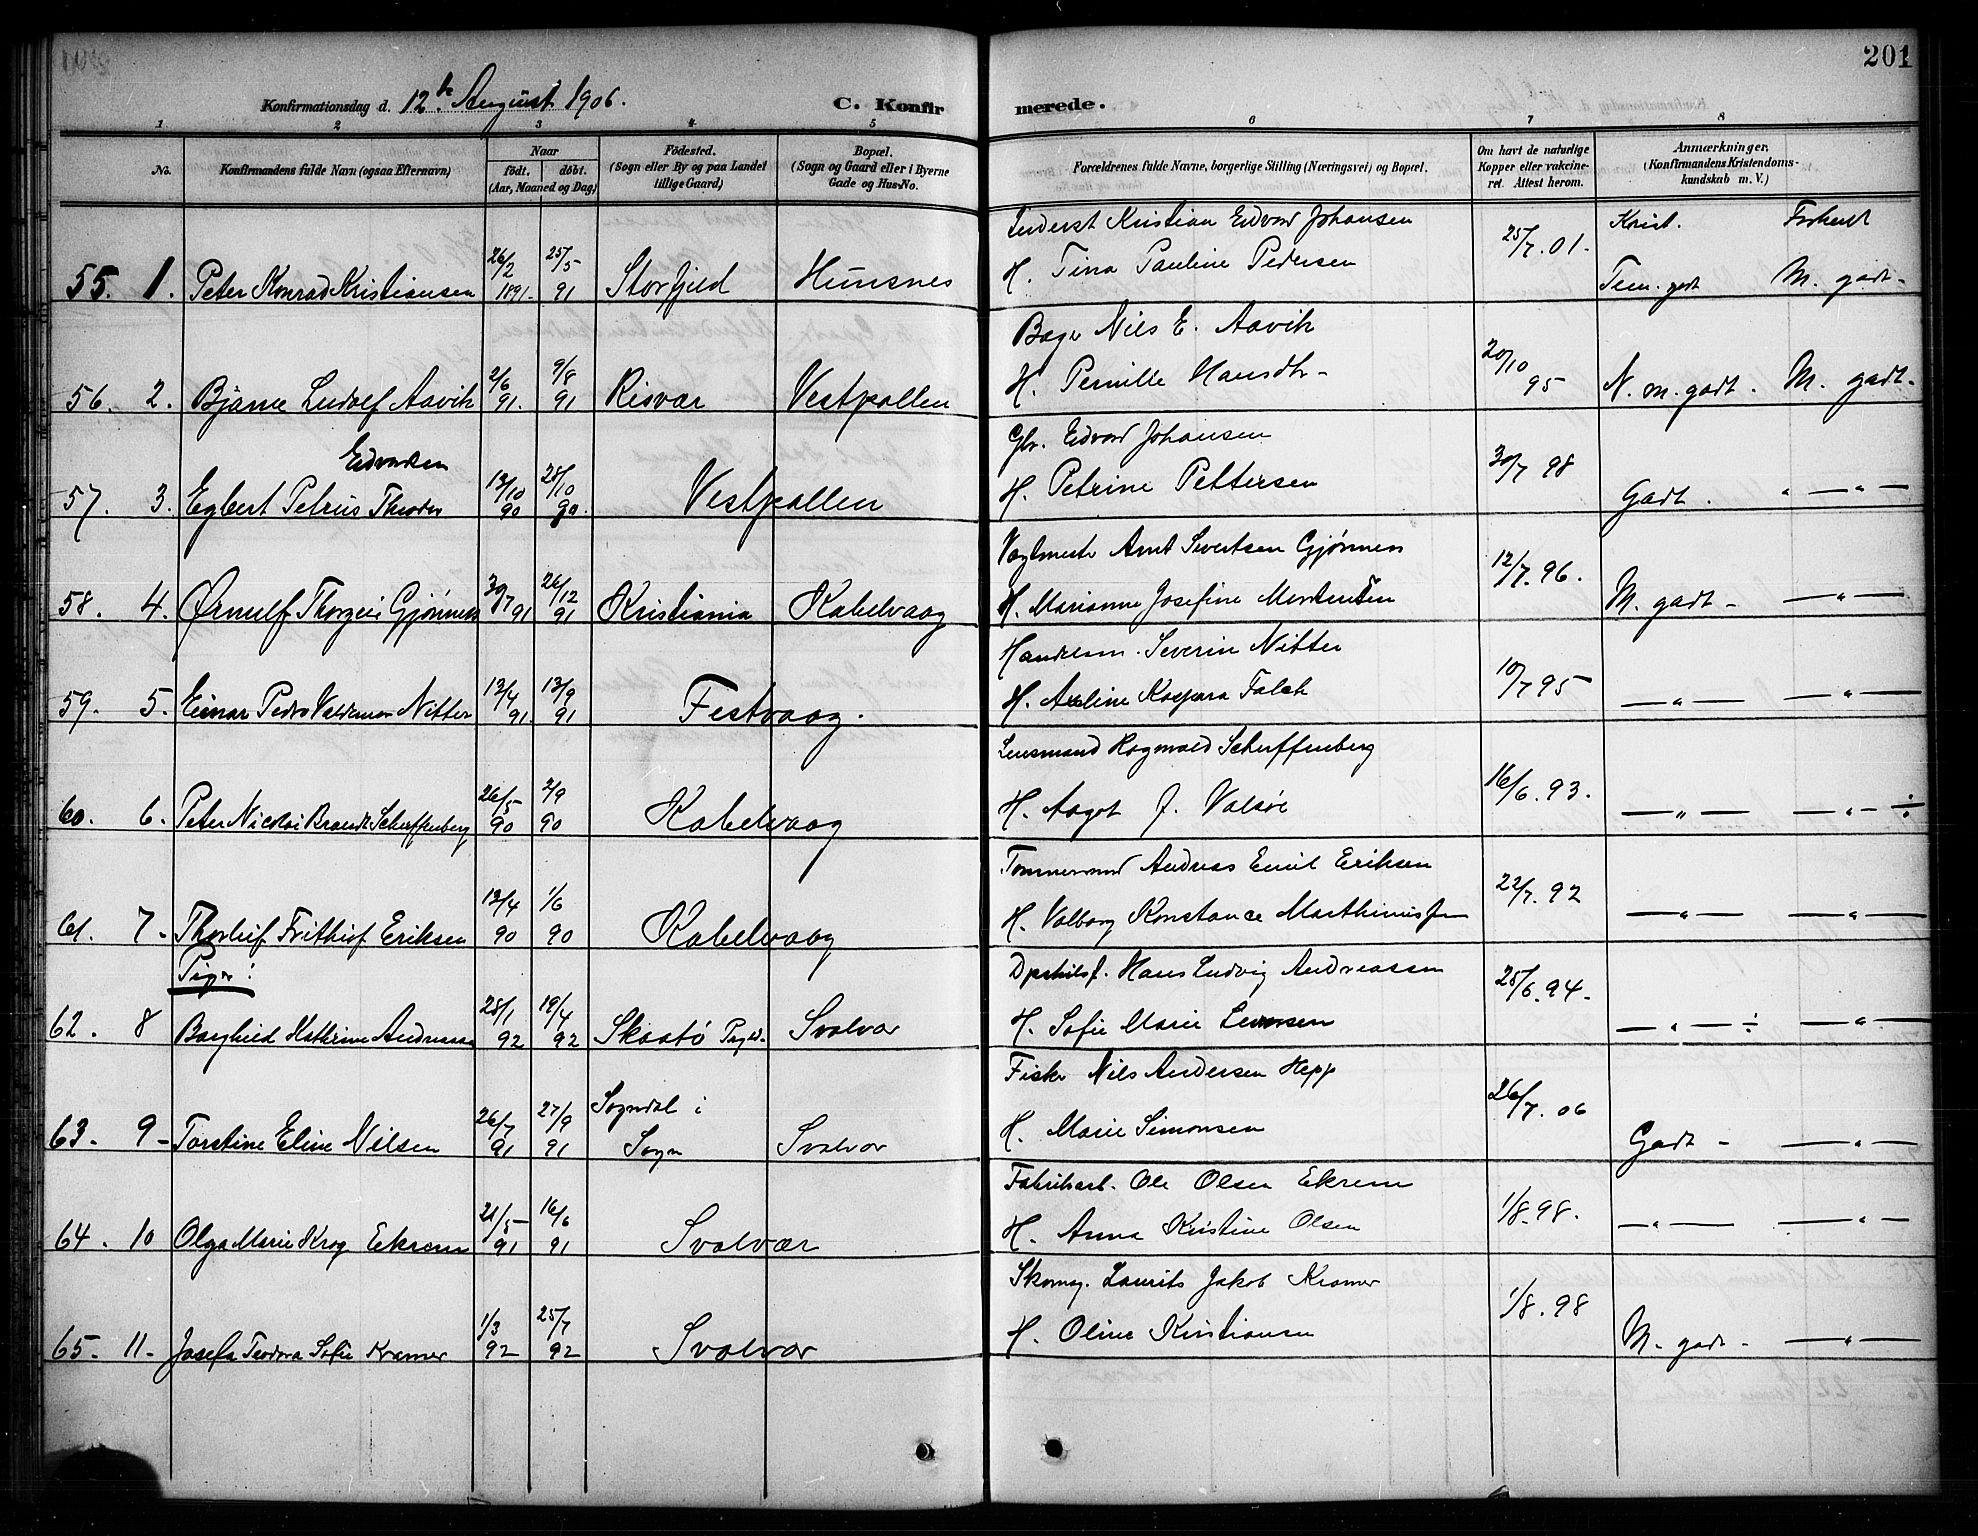 201
Konfirmationsdag d. 12te August 1906.
C. Konfirmerede.
1 2 3 4 5 6 7 8
No.
Konfirmandens fulde Navn (ogsaa Efternavn)
Naar
födt. döbt.
(Aar, Maaned og Dag)
Födested.
(Sogn eller By og paa Landet tillige Gaard)
Bopæl.
(Sogn og Gaard eller i Byerne Gade og Hus-No.
Forældrenes fulde Navne, borgerlige Stilling (Næringsvei) og Bopæl.
Om havt de naturlige Kopper eller vakcineret. Attest herom.
Anmærkninger.
(Konfirmandens Kristendomskundskab m. V.)
Inderst Kristian Edvard Johansen Krist. Forhent
55. 1. Peter Konrad Kristiansen 26/2 1891. 25/5 91 Storfjeld Hunsnes H. Tina Pauline Pedersen 25/7.01. Tem. godt M. godt-
Bager Nils E. Aavik
56. 2. Bjarne Ludolf Aavik 2/6 91. 9/8 91 Risvær Vestpollen H. Pernille Hansdtr- 20/10 95 N. m. godt. M. godt.
Edvardsen
Gbr. Edvard Johansen
57. 3. Egbert Petrus Theodor 13/10 90 28/10 90. Vestpollen H. Petrine Pettersen 30/7 98 Godt. " — " —
Vagtmester Arnt Sivertsen Gjønnes
58. 4. Ørnulf Thorgeir Gjønnes 30/7 91 26/12 91 Kristiania Kabelvaag H. Marianne Josefine Mortensen 12/7.96. M. godt - — " —
Handelsm. Severin Nitter
59. 5. Einar Pedro Valdemar Nitter 13/4 91. 13/9 91 Festvaag. H. Axeline Kaspara Falch 10/7 95 — " — — " —
Lensmand Ragnvald Scharffenberg
60. 6. Peter Nicolai Brandt Scharffenberg 26/5 90 2/9 90 Kabelvaag H. Aagot J. Valsøe 16/6.93. — " — — " - ÷
Tømmermand Andreas Emil Eriksen
61. 7- Thorleif Frithiof Eriksen 13/4 90 1/6 90 Kabelvaag H. Valborg Konstance 22/7.92 — " — — " —
Piger:
Hans Ludvig Andreassen
62. 8 Borghild Kathrine Andreassen 28/1 92 19/4 92 Skaatø Svolvær H. Sofie Marie 25/6.94. — " — ÷ — " —
Fisker Nils Andersen Hepp
63. 9- Torstine Eline Nilsen 26/7 91 27/9 91 Sogndal i Sogn Svolvær H. Marie Simonsen 26/7.06 Godt - — " —
Fabrikarb. Ole Olsen Ekrem
64. 10 Olga Marie Krog Ekrem 21/5 91 16/6 91 Svolvær H. Anna Kristine Olsen 1/8.98. — " — — " —
Skomag. Laurits Jakob Kramer
65. 11- Josefa Teodora Sofie Kramer 1/3 92 25/7 92 Svolvær H. Oline Kristiansen 1/8.98 M. godt - — " —